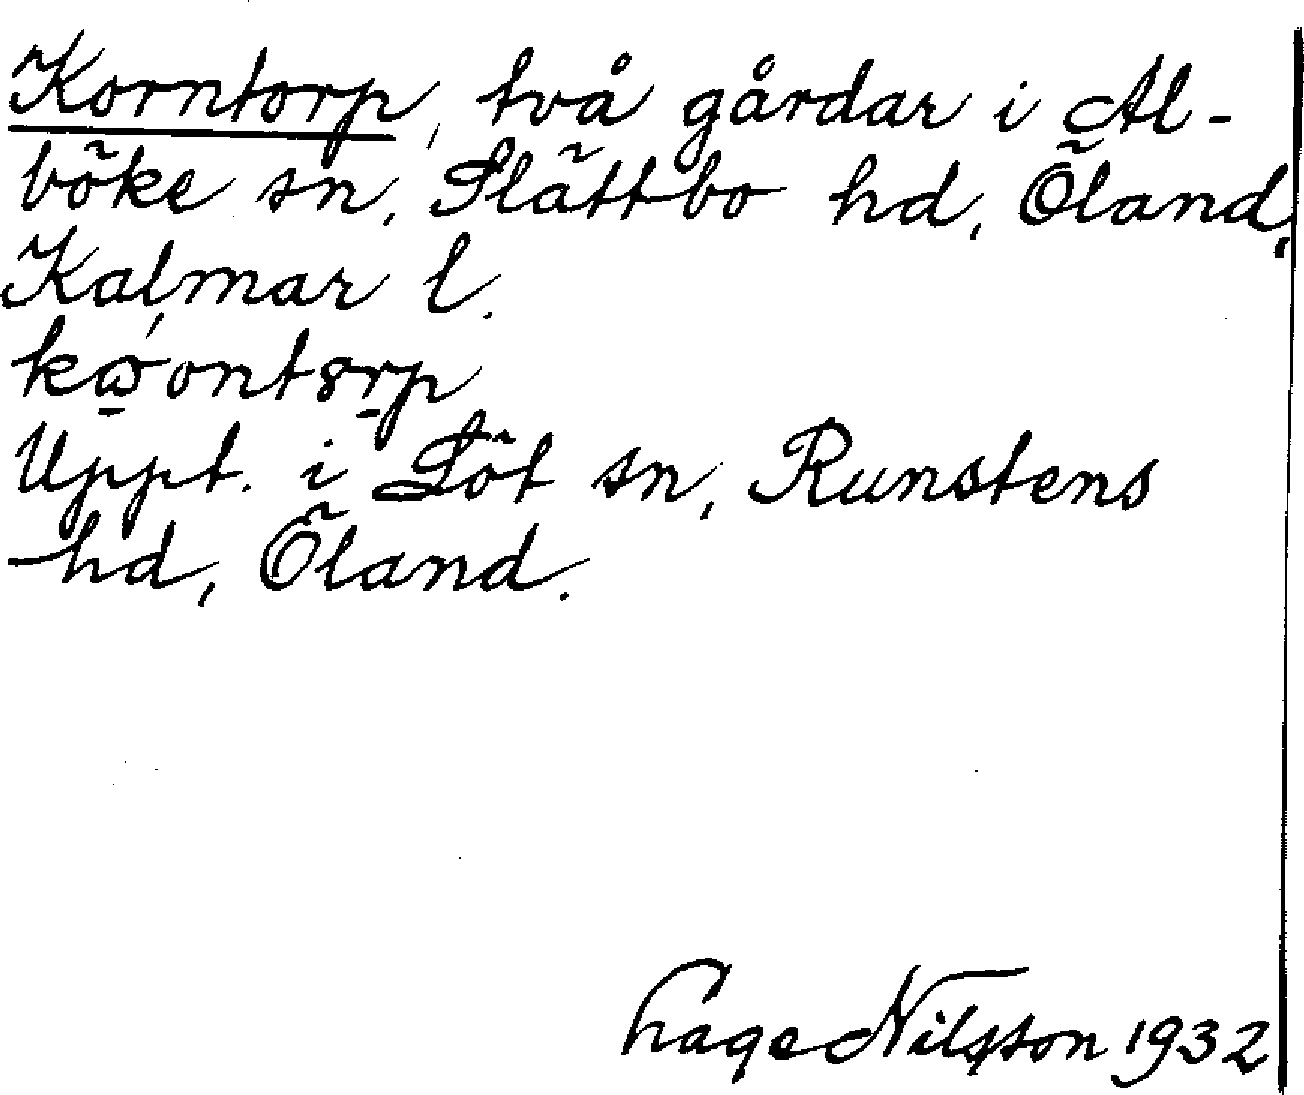 Korntorp, två gårdar i Al-
böke sn, Slättbo hd, Öland,
Kalmar l.
Uppt. i Löt sn, Runstens
hd, Öland.
Nilsson 1932